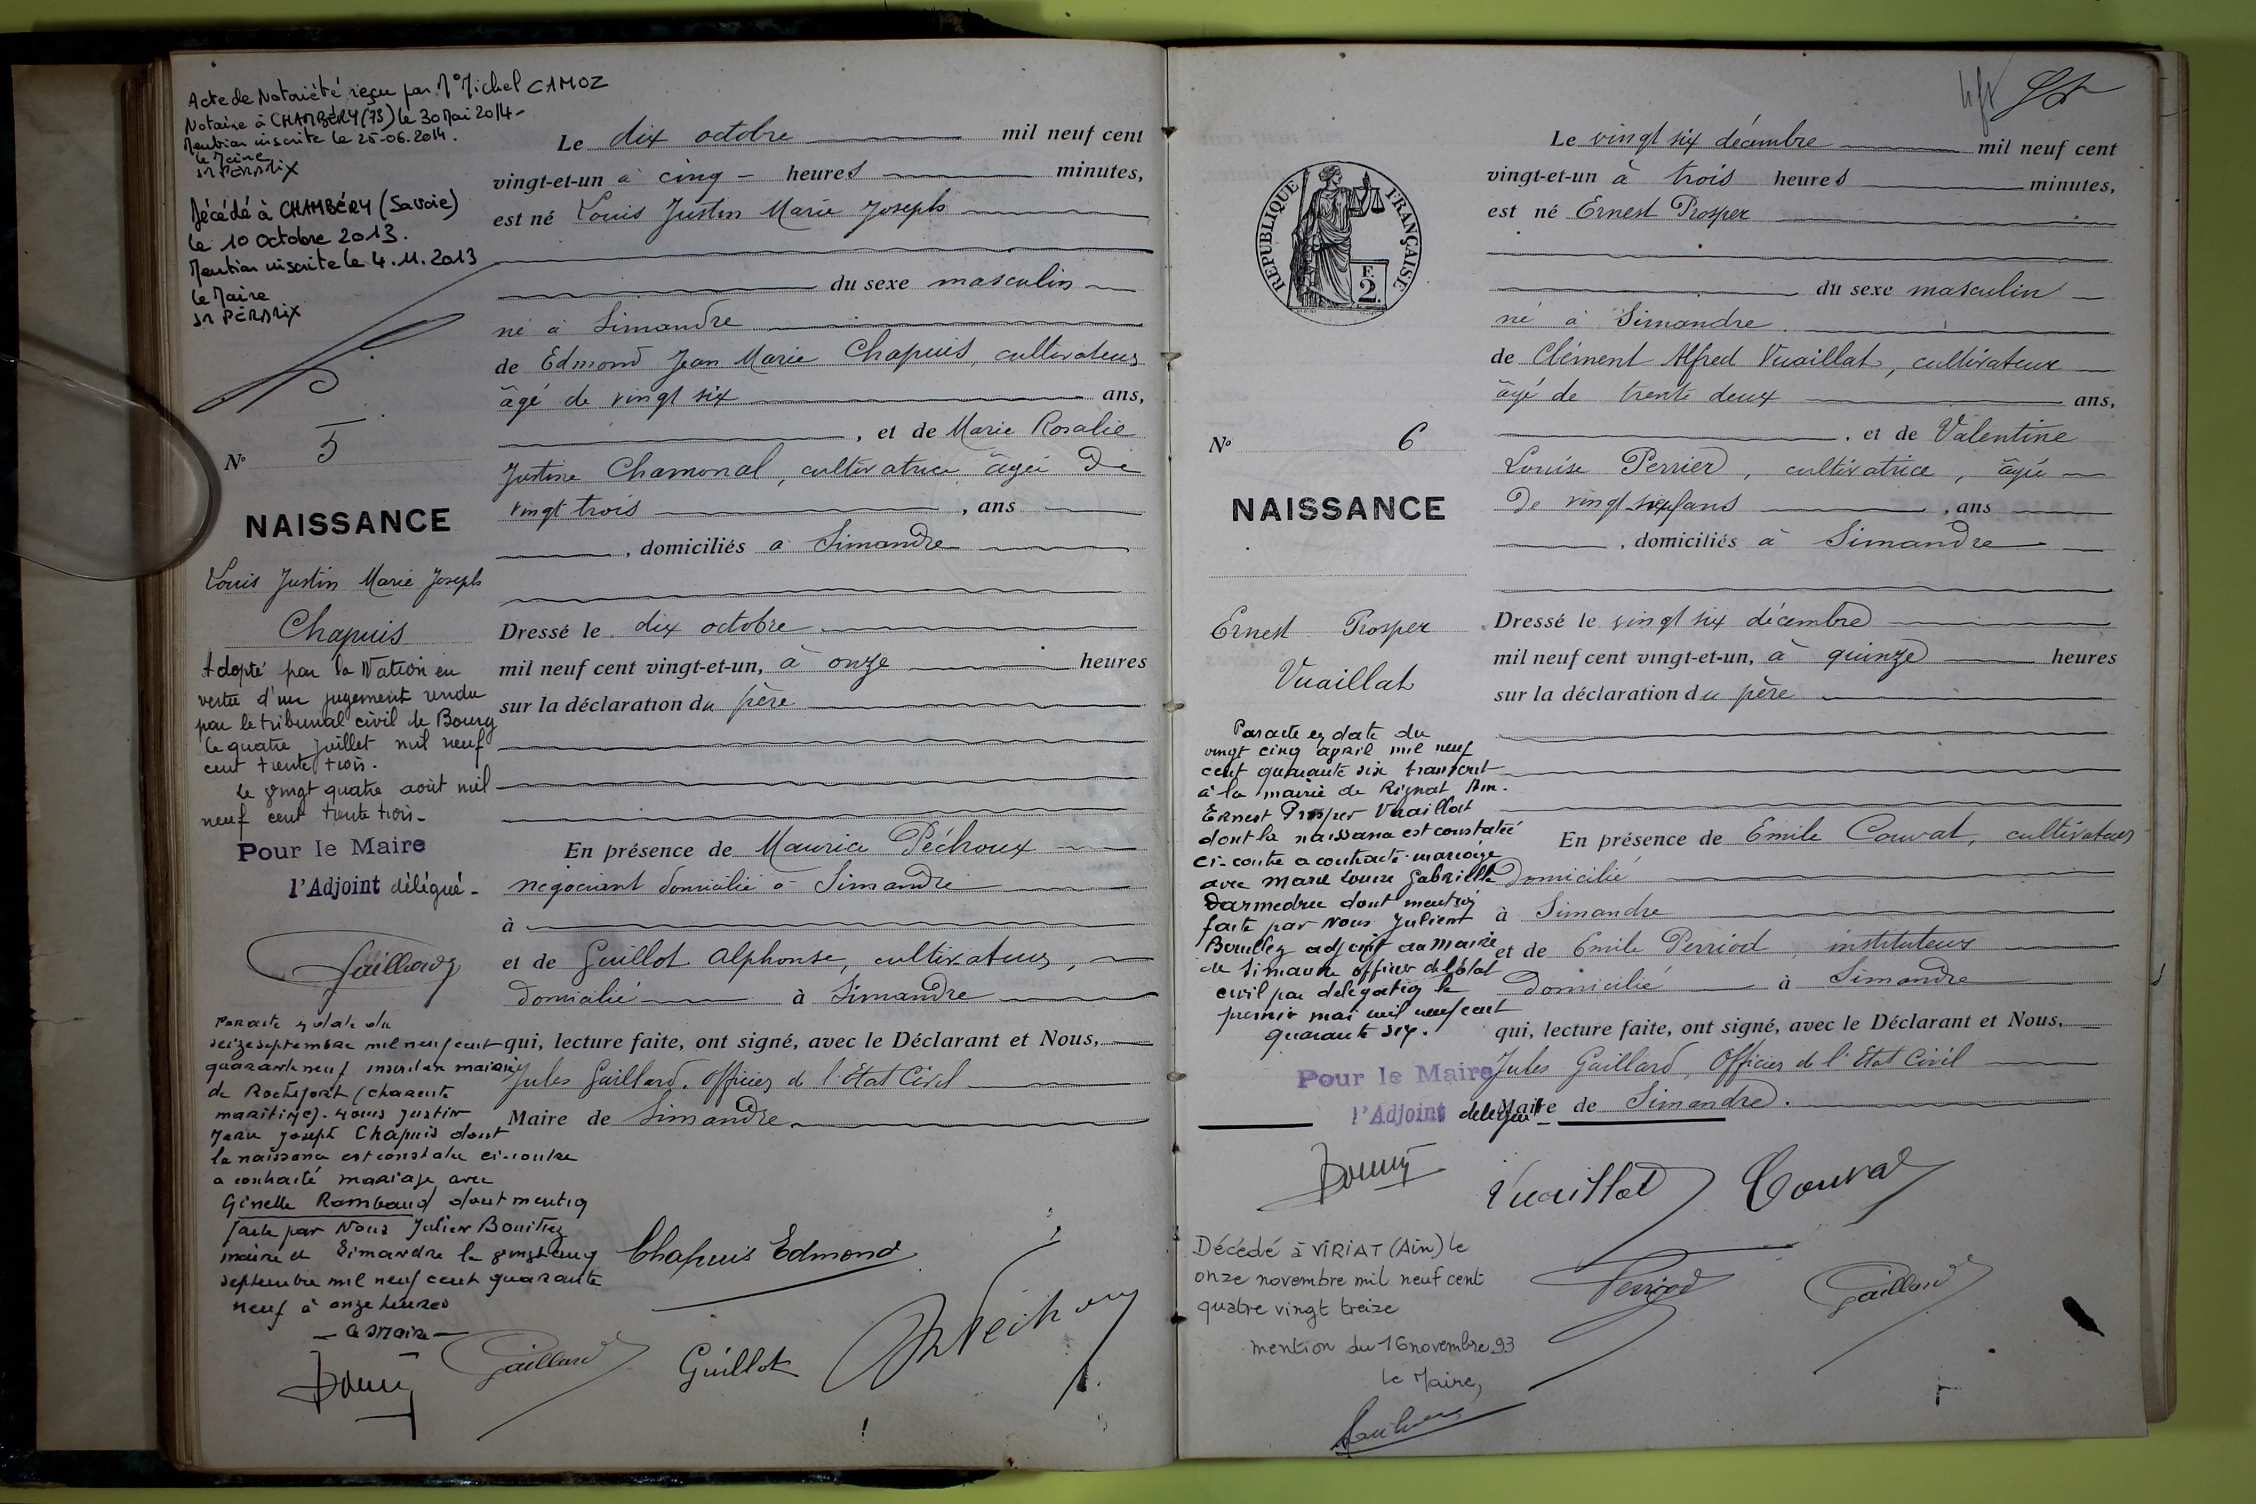 Acte de Notoriété reçu par Me Michel CAMOZ
Notaire à CHAMBÉRY (73) le 30 Mai 2014 -
Mention inscrite le 25-06.2014.
le Maire
Décédé à CHAMBÉRY (Savoie)
le 10 Octobre 2013.
Mention inscrite le 4.11.2013
le Maire
No 5
NAISSANCE
Louis Justin Marie Joseph
Chapuis
Adopté par la Nation en
vertu d'un jugement rendu
par le tribunal civil de Bourg
le quatre juillet mil neuf
cent trente trois.
le vingt quatre août mil
neuf cent trente trois -
Pour le Maire
l'Adjoint délégué -
Gaillard
Par acte en date du
seize septembre mil neuf cent
quarante neuf inscrit en mairie
de Rochefort (Charente
maritime). Louis Justin
Marie Joseph Chapuis dont
la naissance est constatée ci-contre
a contracté mariage avec
Ginelle Rambaud dont mention
faite par Nous Julien
maire de Simandre le vingt cinq
septembre mil neuf cent quarante
neuf à onze heures
- le Maire -
Le dix octobre mil neuf cent
vingt-et-un à cinq heures minutes,
est né Louis Justin Marie Joseph
du sexe masculin
né à Simandre
de Edmond Jean Marie Chapuis, cultivateur
âgé de vingt six ans,
, et de Marie Rosalie
Justine Chamonal, cultivatrice âgée de
vingt trois , ans
, domiciliés à Simandre
Dressé le dix octobre
mil neuf cent vingt-et-un, à onze heures
sur la déclaration du père
En présence de Maurice Péchoux
négociant domicilié à Simandre
à
et de Guillot Alphonse, cultivateur,
domicilié à Simandre
qui, lecture faite, ont signé, avec le Déclarant et Nous,
Jules Gaillard, Officier de l'Etat Civil
Maire de Simandre.
Chapuis Edmond
Gaillard
Guillot
Péchoux
RÉPUBLIQUE FRANÇAISE
F.
2.
No 6
NAISSANCE
Ernest Prosper
Vuaillat
Par acte en date du
vingt cinq april mil neuf
cent quarante six transcrit
à la mairie de Rignat Ain.
Ernest Prosper Vuaillat
dont la naissance est constatée
ci-contre a contracté mariage
avec Marie Louise Gabrielle
Darmedru dont mention
faite par Nous Julien
adjoint au Maire
de Simandre officier de l'état
civil par délégation le
premier mai mil neuf cent
quarante six.
Pour le Maire
l'Adjoint délégué -
Décédé à VIRIAT (Ain) le
onze novembre mil neuf cent
quatre vingt treize
mention du 16 novembre 93
le Maire,
Le vingt six décembre mil neuf cent
vingt-et-un à trois heures minutes,
est né Ernest Prosper
du sexe masculin
né à Simandre
de Clément Alfred Vuaillat, cultivateur
âgé de trente deux ans,
, et de Valentine
Louise Perrier, cultivatrice, âgée
de vingt sept ans , ans
, domiciliés à Simandre
Dressé le vingt six décembre
mil neuf cent vingt-et-un, à quinze heures
sur la déclaration du père
En présence de Emile Couvat, cultivateur
domicilié
à Simandre
et de Emile Perriod, instituteur
domicilié à Simandre
qui, lecture faite, ont signé, avec le Déclarant et Nous,
Jules Gaillard, Officier de l'Etat Civil
Maire de Simandre.
Vuaillat
Couvat
Perriod
Gaillard